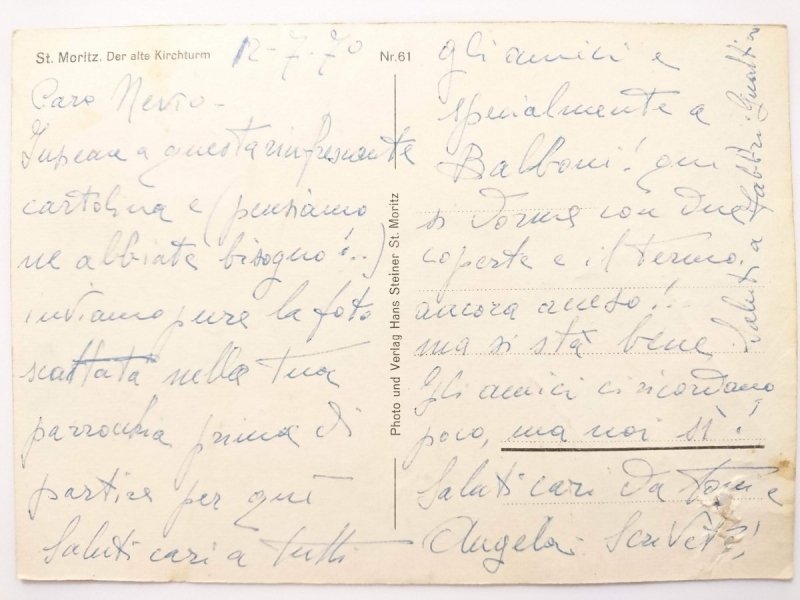 St. Moritz. Der alte Kirchturm
12-7-70
Nr. 61
Caro Nevio-
Insieme a questa rinfrescante
cartolina e (pensiamo
ne abbiate bisogno!..)
inviamo pure la foto
scattata nella tua
parrocchia prima di
partire per qui
Saluti cari a tutti
gli amici e
specialmente a
Balboni! qui
si dorme con due
coperte e il termo.
ancora acceso!
ma si stà bene
Gli amici ci ricordano
poco, ma noi sì!
Saluti cari da Toni e
Angela. Scrivete!
Saluti a Fabbri
Photo und Verlag Hans Steiner St. Moritz